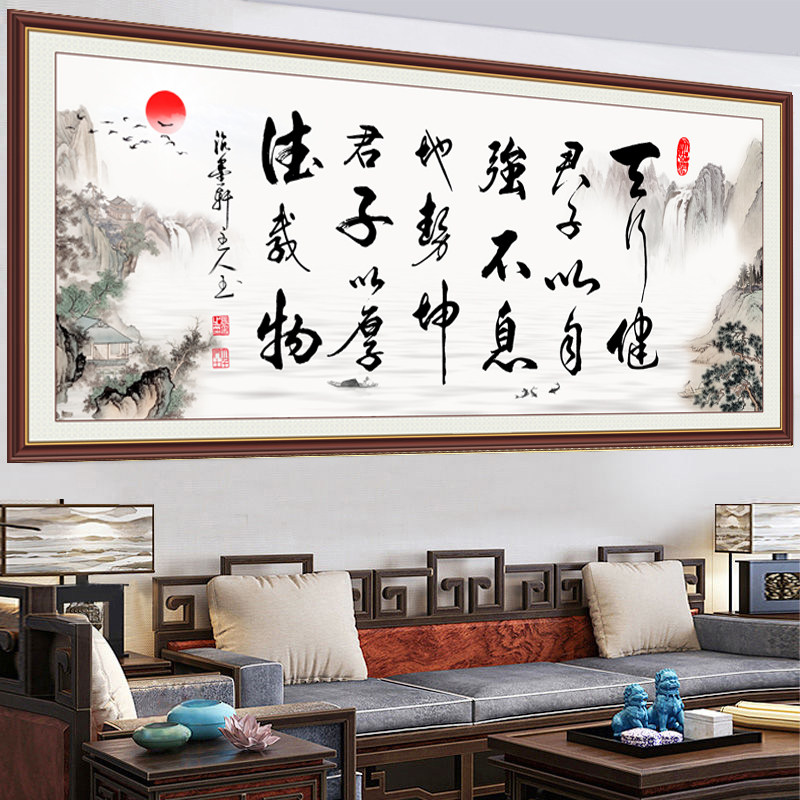 天行健
君子以自
強不息
地勢坤
君子以厚
德載物
主人玉